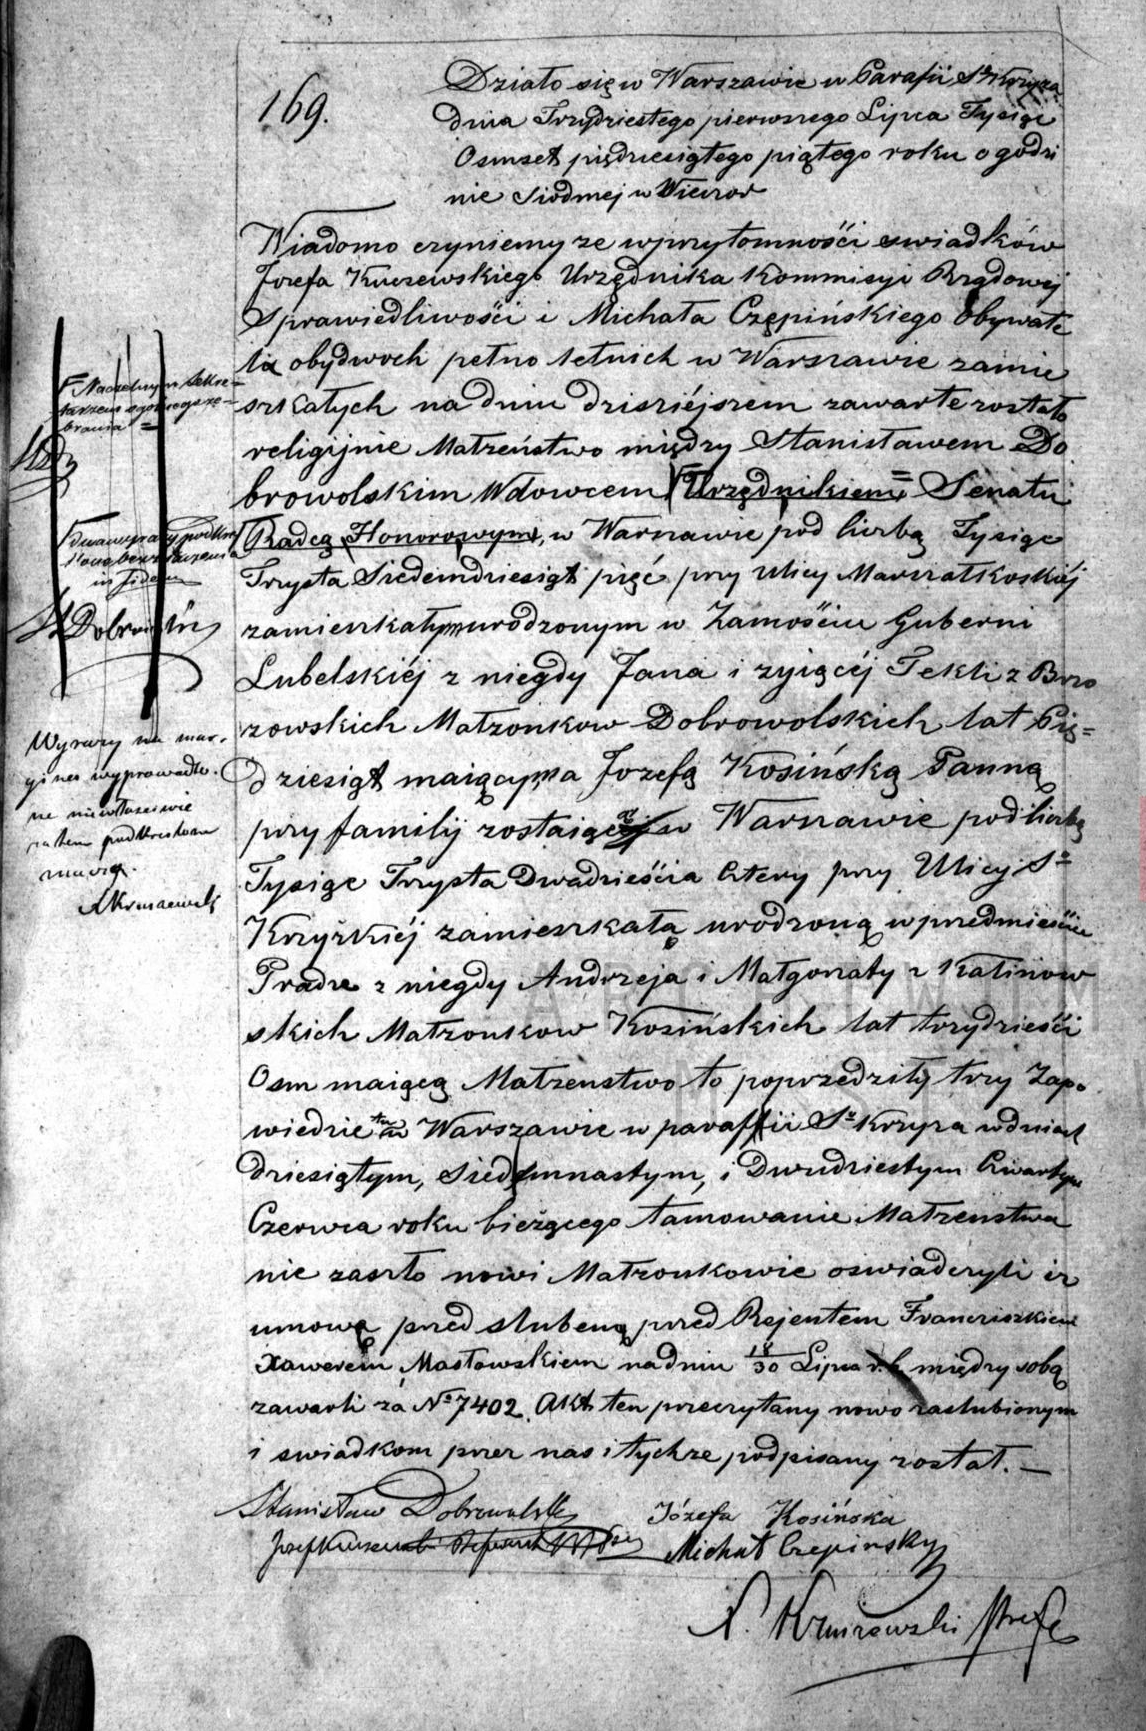 169.
Działo się w Warszawie w Parafii Sº Krzyża
dnia Trzydziestego pierwszego Lipca Tysiąc
Osmset piędziesiątego piątego roku o godzi
nie Siodmej w Wieczor
Wiadomo czyniemy ze w przytomnośći swiadków
Jozefa Kuczewskiego Urzędnika Kommisyi Rządowej
Sprawiedliwośći i Michała Czępińskiego Obywate
la obydwoch pełno letnich w Warszawie zamie
szkałych na dniu dzisiéjszem zawarte zostało
religijnie Małżeństwo między Stanisławem Do
browolskim Wdowcem Urzędnikiem Senatu
Radcą Honorowym, w Warszawie pod liczbą Tysiąc
Trzysta Siedemdziesiąt pięć przy ulicy Marszałkoskiéj
zamieszkałym urodzonym w Zamośćiu Guberni
Lubelskiéj z niegdy Jana i zyiącéj Tekli z Brzo
zowskich Małzonkow Dobrowolskich lat Pię=
dziesiąt maiącym, a Jozefą Kosińską Panną
przy familij zostaiącą w Warszawie pod liczbą
Tysiąc Trzysta Dwadzieśćia Cztery przy Ulicy Sº
Krzyżkiéj zamieszkałą urodzoną w przedmieśćiu
Pradze z niegdy Andrzeja i Małgorzaty z Kalinow
skich Małzonkow Kosińskich lat trzydzieśći
Osm maiącą Małzenstwo to poprzedziły trzy Zapo
wiedzie tu w Warszawie w paraffii Sº Krzyza w dniach
dziesiątym, Siedmnastym, i Dwudziestym Czwartym
Czerwca roku bieżącego tamowanie Małzenstwa
nie zaszło nowi Małzonkowie oswiadczyli iz
umowę przed slubną przed Rejentem Franciszkiem
Xawerem Masłowskiem na dniu 18/30 Lipca r. b. między sobą
zawarli za Nº 7402. Akt ten przeczytany nowo zaslubionym
i swiadkom przez nas i tychze podpisany został. —
Stanisław Dobrowolski Józefa Kosińska
Michał Czepinsky
Naczelnym Sekre-
tarzem ogólnego ze-
brania =
in fidem
St Dobrowolski
Wyrazy na mar-
gines wyprowadzo-
ne niewłasciwie